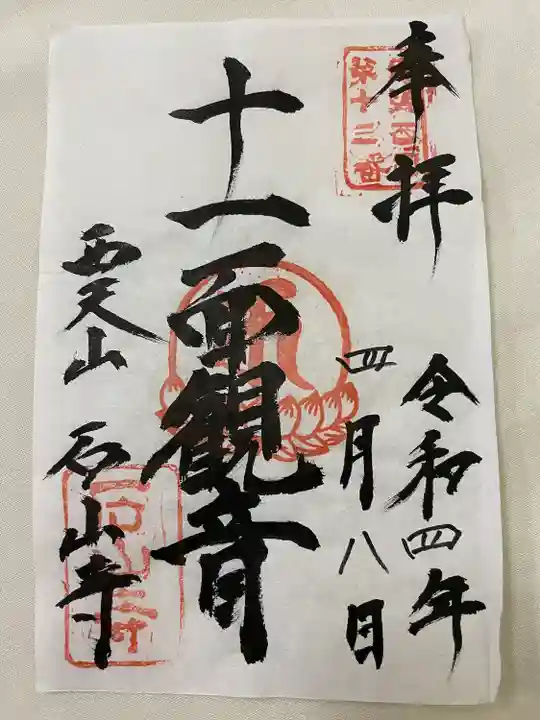 奉拝
第十三番
令和四年
四月八日
十一面観音
西天山
石山寺